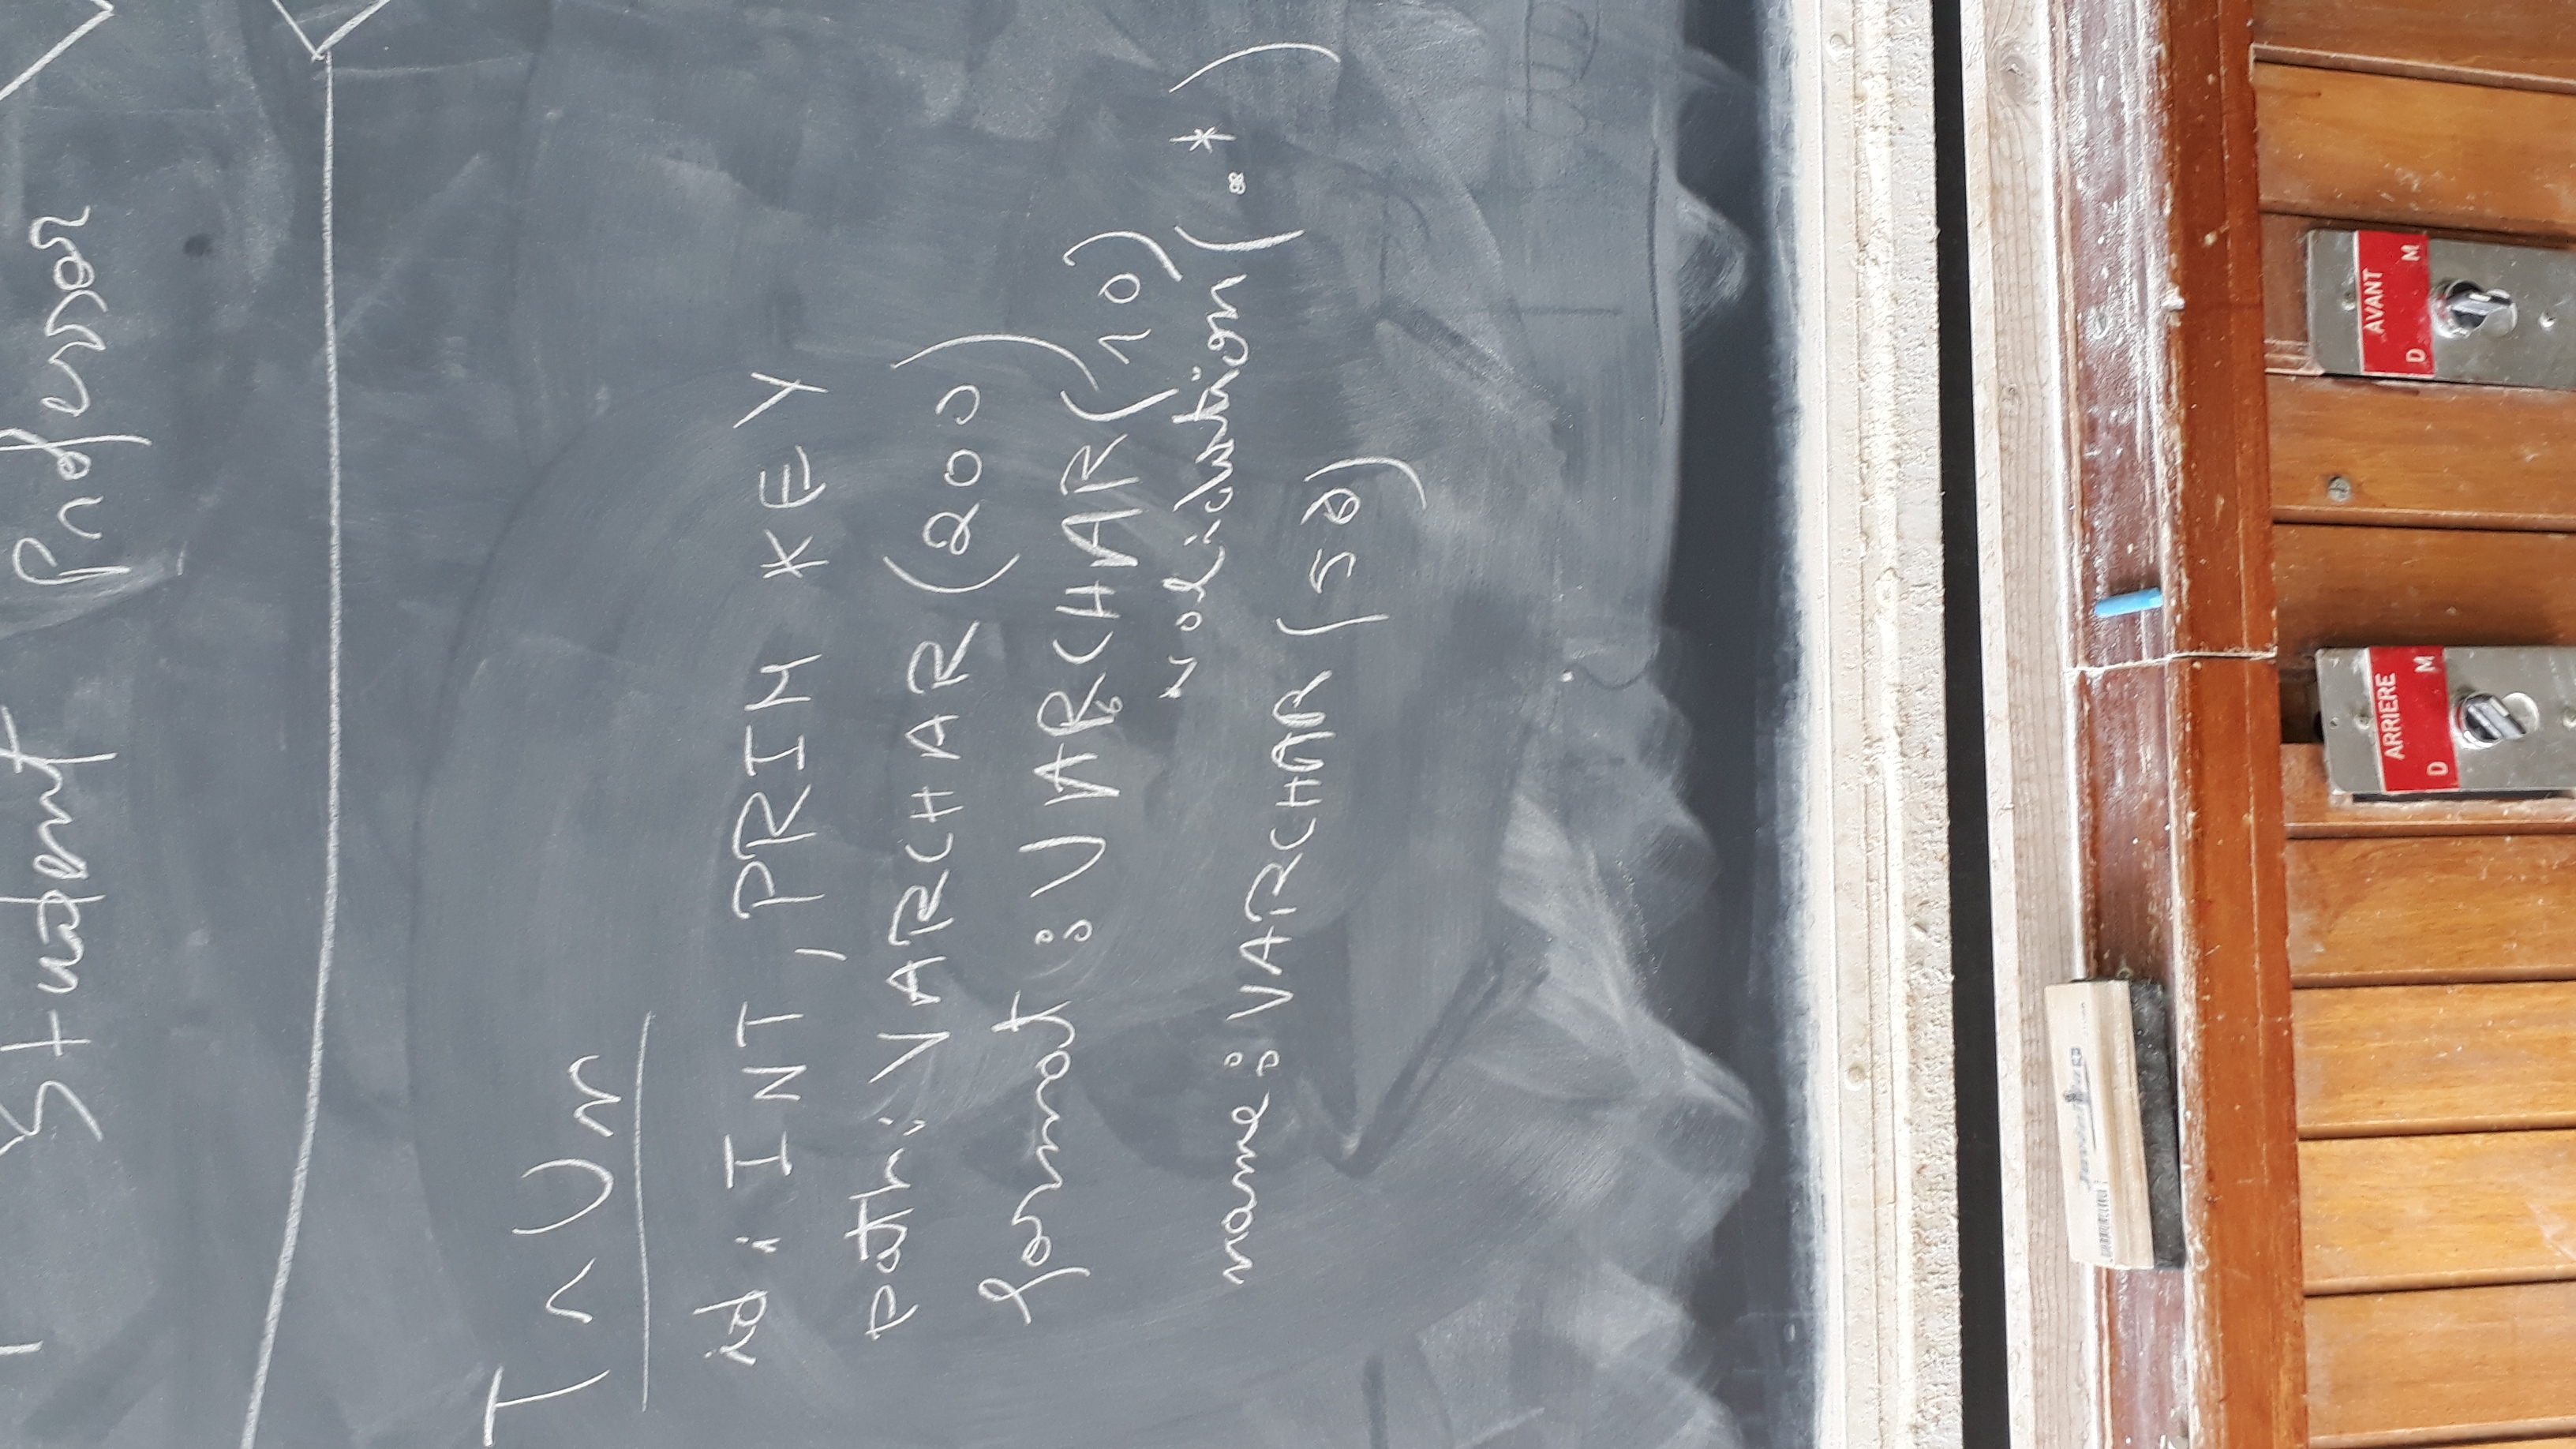 Student Professor
TnUn
id: INT, PRIM KEY
path: VARCHAR (200)
format: VARCHAR (10)
validation (.*)
name: VARCHAR (50)
ARRIERE
D M
AVANT
D M